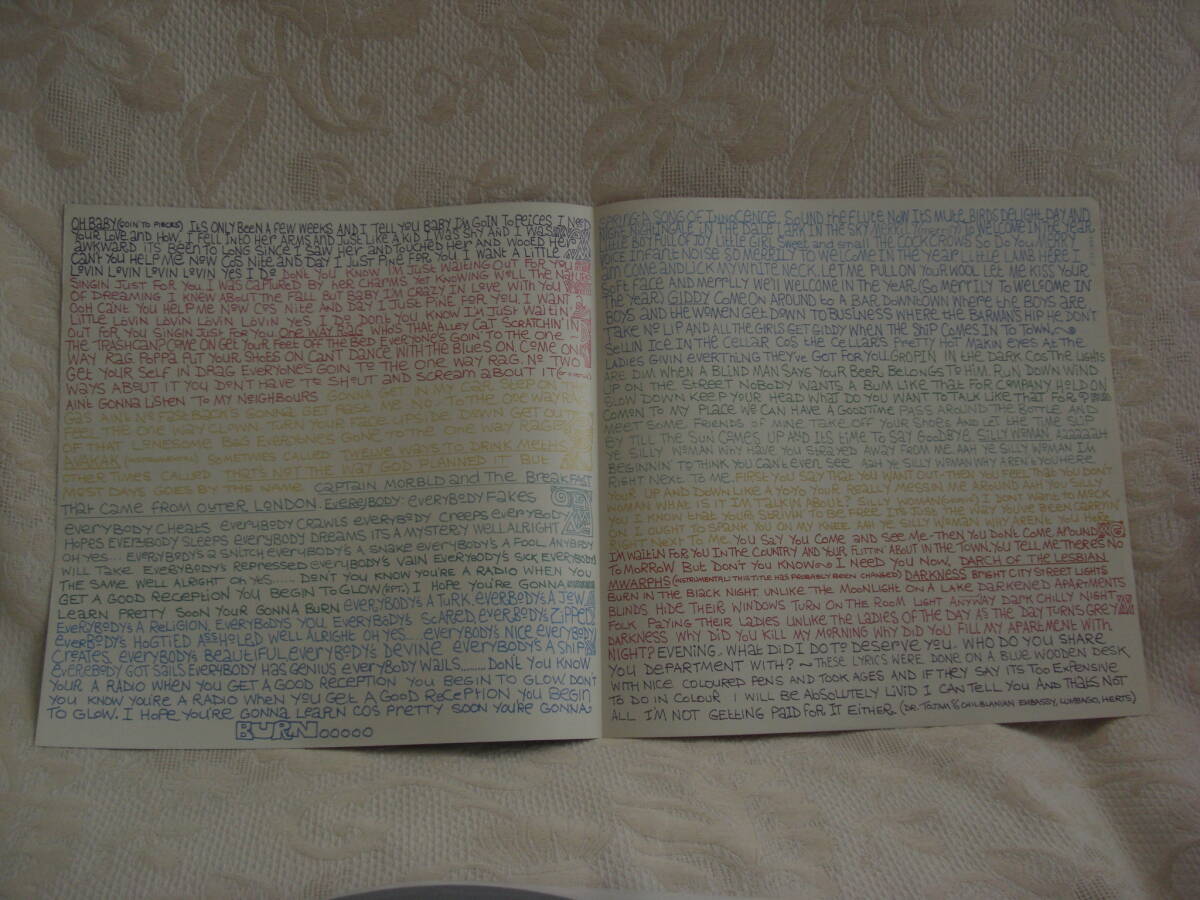 OH BABY (GOIN TO PIECES) ITS ONLY BEEN A FEW WEEKS AND I TELL YOU BABY I'M GOIN TO PEICES I NEED
YOUR LOVE AND HOW, I FELL INTO HER ARMS AND JUST LIKE A KID I WAS SHY AND I WAS
AWKWARD ITS BEEN TO LONG SINCE I SAW HER AND TOUCHED HER AND WOOED HER
CAN'T YOU HELP ME NOW COS NITE AND DAY I JUST PINE FOR YOU I WANT A LITTLE
LOVIN LOVIN LOVIN LOVIN YES I DO DONT YOU KNOW I'M JUST WAITING OUT FOR YOU
SINGIN JUST FOR YOU I WAS CAPTURED BY HER CHARMS YET KNOWING WELL THE NATURE
OF DREAMING I KNEW ABOUT THE FALL BUT BABY I'M CRAZY IN LOVE WITH YOU
OOH CANT YOU HELP ME NOW COS NITE AND DAY I JUST PINE FOR YOU, I WANT A
LITTLE LOVIN LOVIN LOVIN LOVIN YES I DO DON'T YOU KNOW I'M JUST WAITIN'
OUT FOR YOU SINGIN JUST FOR YOU ONE WAY RAG WHO'S THAT ALLEY CAT SCRATCHIN' IN
THE TRASHCAN? COME ON GET YOUR FEET OFF THE BED EVERYONE'S GOIN TO THE ONE
WAY RAG. POPPA PUT YOUR SHOES ON CAN'T DANCE WITH THE BLUES ON, COME ON
GET YOUR SELF IN DRAG EVERYONE'S GOIN TO THE ONE WAY RAG. NO TWO
WAYS ABOUT IT YOU DON'T HAVE TO SHOUT AND SCREAM ABOUT IT
AINT GONNA LISTEN TO MY NEIGHBOURS GONNA GET A CAR STEP ON THE
GAS NO FASTBACK'S GONNA GET PAST ME NO. TO THE ONE WAY RAG
FEEL THE ONE WAY CLOWN. TURN YOUR FACE UPSIDE DOWN GET OUT
OF THAT LONESOME BAG EVERYONE'S GONE TO THE ONE WAY RAG
AVAKAK (INSTRUMENTAL) SOMETIMES CALLED THREE WAYS TO DRINK METHS
OTHER TIMES CALLED THAT'S NOT THE WAY GOD PLANNED IT BUT
MOST DAYS GOES BY THE NAME CAPTAIN MORBLD AND THE BREAKFAST
THAT CAME FROM OUTER LONDON. EVERYBODY EVERYBODY FAKES
EVERYBODY CHEATS EVERYBODY CRAWLS EVERYBODY CREEPS EVERYBODY
HOPES EVERYBODY SLEEPS EVERYBODY DREAMS ITS A MYSTERY WELL ALRIGHT
OH YES... EVERYBODY'S A SNITCH EVERYBODY'S A SNAKE EVERYBODY'S A FOOL, ANYBODY
WILL TAKE. EVERYBODY'S REPRESSED EVERYBODY'S VAIN EVERYBODY'S SICK EVERYBODY'S
THE SAME WELL ALRIGHT OH YES..... DON'T YOU KNOW YOU'RE A RADIO WHEN YOU
GET A GOOD RECEPTION YOU BEGIN TO GLOW (RPT.) I HOPE YOU'RE GONNA
LEARN PRETTY SOON YOUR GONNA BURN EVERYBODY'S A TURK, EVERYBODY'S A JEW
EVERYBODY'S A RELIGION, EVERYBODY'S YOU, EVERYBODY'S SCARED, EVERYBODY'S ZIPPED
EVERYBODY'S HOGTIED ASSHOLED WELL ALRIGHT OH YES... EVERYBODY'S NICE EVERYBODY
CREATES, EVERYBODY'S BEAUTIFUL EVERYBODY'S DEVINE EVERYBODY'S A SHIP
EVEREBODY GOT SAILS EVERYBODY HAS GENIUS EVERYBODY WAILS........ DONT YOU KNOW
YOUR A RADIO WHEN YOU GET A GOOD RECEPTION YOU BEGIN TO GLOW DON'T
YOU KNOW YOU'RE A RADIO WHEN YOU GET A GOOD RECEPTION YOU BEGIN
TO GLOW. I HOPE YOU'RE GONNA LEARN COS PRETTY SOON YOU'RE GONNA
BURN.....
SPRING: A SONG OF INNOCENCE. SOUND THE FLUTE NOW ITS MUTE BIRDS DELIGHT DAY AND
NIGHT NIGHTINGALE IN THE DALE LARK IN THE SKY MERRILY TO WELCOME IN THE YEAR
LITTLE BOY FULL OF JOY LITTLE GIRL SWEET AND SMALL THE COCK CROWS SO DO YOU MERRY
VOICE INFANT NOISE SO MERRILY TO WELCOME IN THE YEAR LITTLE LAMB HERE I
AM COME AND LICK MY WHITE NECK, LET ME PULL ON YOUR WOOL LET ME KISS YOUR
SOFT FACE AND MERRILY WE'LL WELCOME IN THE YEAR (SO MERRILY TO WELCOME IN
THE YEAR) GIDDY COME ON AROUND TO A BAR DOWNTOWN WHERE THE BOYS ARE
BOYS AND THE WOMEN GET DOWN TO BUSINESS WHERE THE BARMAN'S HIP HE DON'T
TAKE NO LIP AND ALL THE GIRLS GET GIDDY WHEN THE SHIP COMES IN TO TOWN
SELLIN ICE IN THE CELLAR COS THE CELLAR'S PRETTY HOT MAKIN EYES AT THE
LADIES GIVIN EVERTHING THEY'VE GOT FOR YOU, GROPIN IN THE DARK COS THE LIGHTS
ARE DIM WHEN A BLIND MAN SAYS YOUR BEER BELONGS TO HIM. RUN DOWN WIND
UP ON THE STREET NOBODY WANTS A BUM LIKE THAT FOR COMPANY HOLD ON
SLOW DOWN KEEP YOUR HEAD WHAT DO YOU WANT TO TALK LIKE THAT FOR?
COMON TO MY PLACE WE CAN HAVE A GOODTIME PASS AROUND THE BOTTLE AND
MEET SOME FRIENDS OF MINE TAKE OFF YOUR SHOES AND LET THE TIME SLIP
BY TILL THE SUN COMES UP AND ITS TIME TO SAY GOODBYE. SILLY WOMAN AAAAAAH
YE SILLY WOMAN WHY HAVE YOU STRAYED AWAY FROM ME AAH YE SILLY WOMAN I'M
BEGINNIN TO THINK YOU CAN'T EVEN SEE. AAH YE SILLY WOMAN WHY AREN'T YOU HERE
RIGHT NEXT TO ME. FIRST YOU SAY THAT YOU WANT OUT THEN YOU SAY THAT YOU DON'T
YOUR UP AND DOWN LIKE A YOYO YOUR REALLY MESSIN ME AROUND AAH YOU SILLY
WOMAN WHAT IS IT I'M TALKIN ABOUT? SILLY WOMAN I DON'T WANT TO MOCK
YOU I KNOW THAT YOUR STRIVIN TO BE FREE. ITS JUST THE WAY YOU'VE BEEN CARRYIN
ON I OUGHT TO SPANK YOU ON MY KNEE AAH YE SILLY WOMAN WHY AREN'T YOU HERE
RIGHT NEXT TO ME. YOU SAY YOU COME AND SEE ME - THEN YOU DON'T COME AROUND
I'M WAITIN FOR YOU IN THE COUNTRY AND YOUR FLITTIN' ABOUT IN THE TOWN, YOU TELL ME THERE'S NO
TO MORROW BUT DON'T YOU KNOW I NEED YOU NOW, DARCH OF THE LESBIAN
MWARPHS (INSTRUMENTAL! THIS TITLE HAS PROBABLY BEEN CHANGED) DARKNESS BRIGHT CITY STREET LIGHTS
BURN IN THE BLACK NIGHT UNLIKE THE MOONLIGHT ON A LAKE DARKENED APARTMENTS
BLINDS HIDE THEIR WINDOWS TURN ON THE ROOM LIGHT ANYWAY DARK CHILLY NIGHT
FOLK PAYING THEIR LADIES UNLIKE THE LADIES OF THE DAY AS THE DAY TURNS GREY
DARKNESS WHY DID YOU KILL MY MORNING WHY DID YOU FILL MY APARTMENT WITH
NIGHT? EVENING, WHAT DID I DO TO DESERVE YOU. WHO DO YOU SHARE
YOU DEPARTMENT WITH? ~ THESE LYRICS WERE DONE ON A BLUE WOODEN DESK
WITH NICE COLOURED PENS AND TOOK AGES AND IF THEY SAY ITS TOO EXPENSIVE
TO DO IN COLOUR I WILL BE ABSOLUTELY LIVID I CAN TELL YOU AND THAT'S NOT
ALL I'M NOT GETTING PAID FOR IT EITHER. (DR. TOTAM % CHILBLANIAN EMBASSY, LUMBAGO, HERTS)